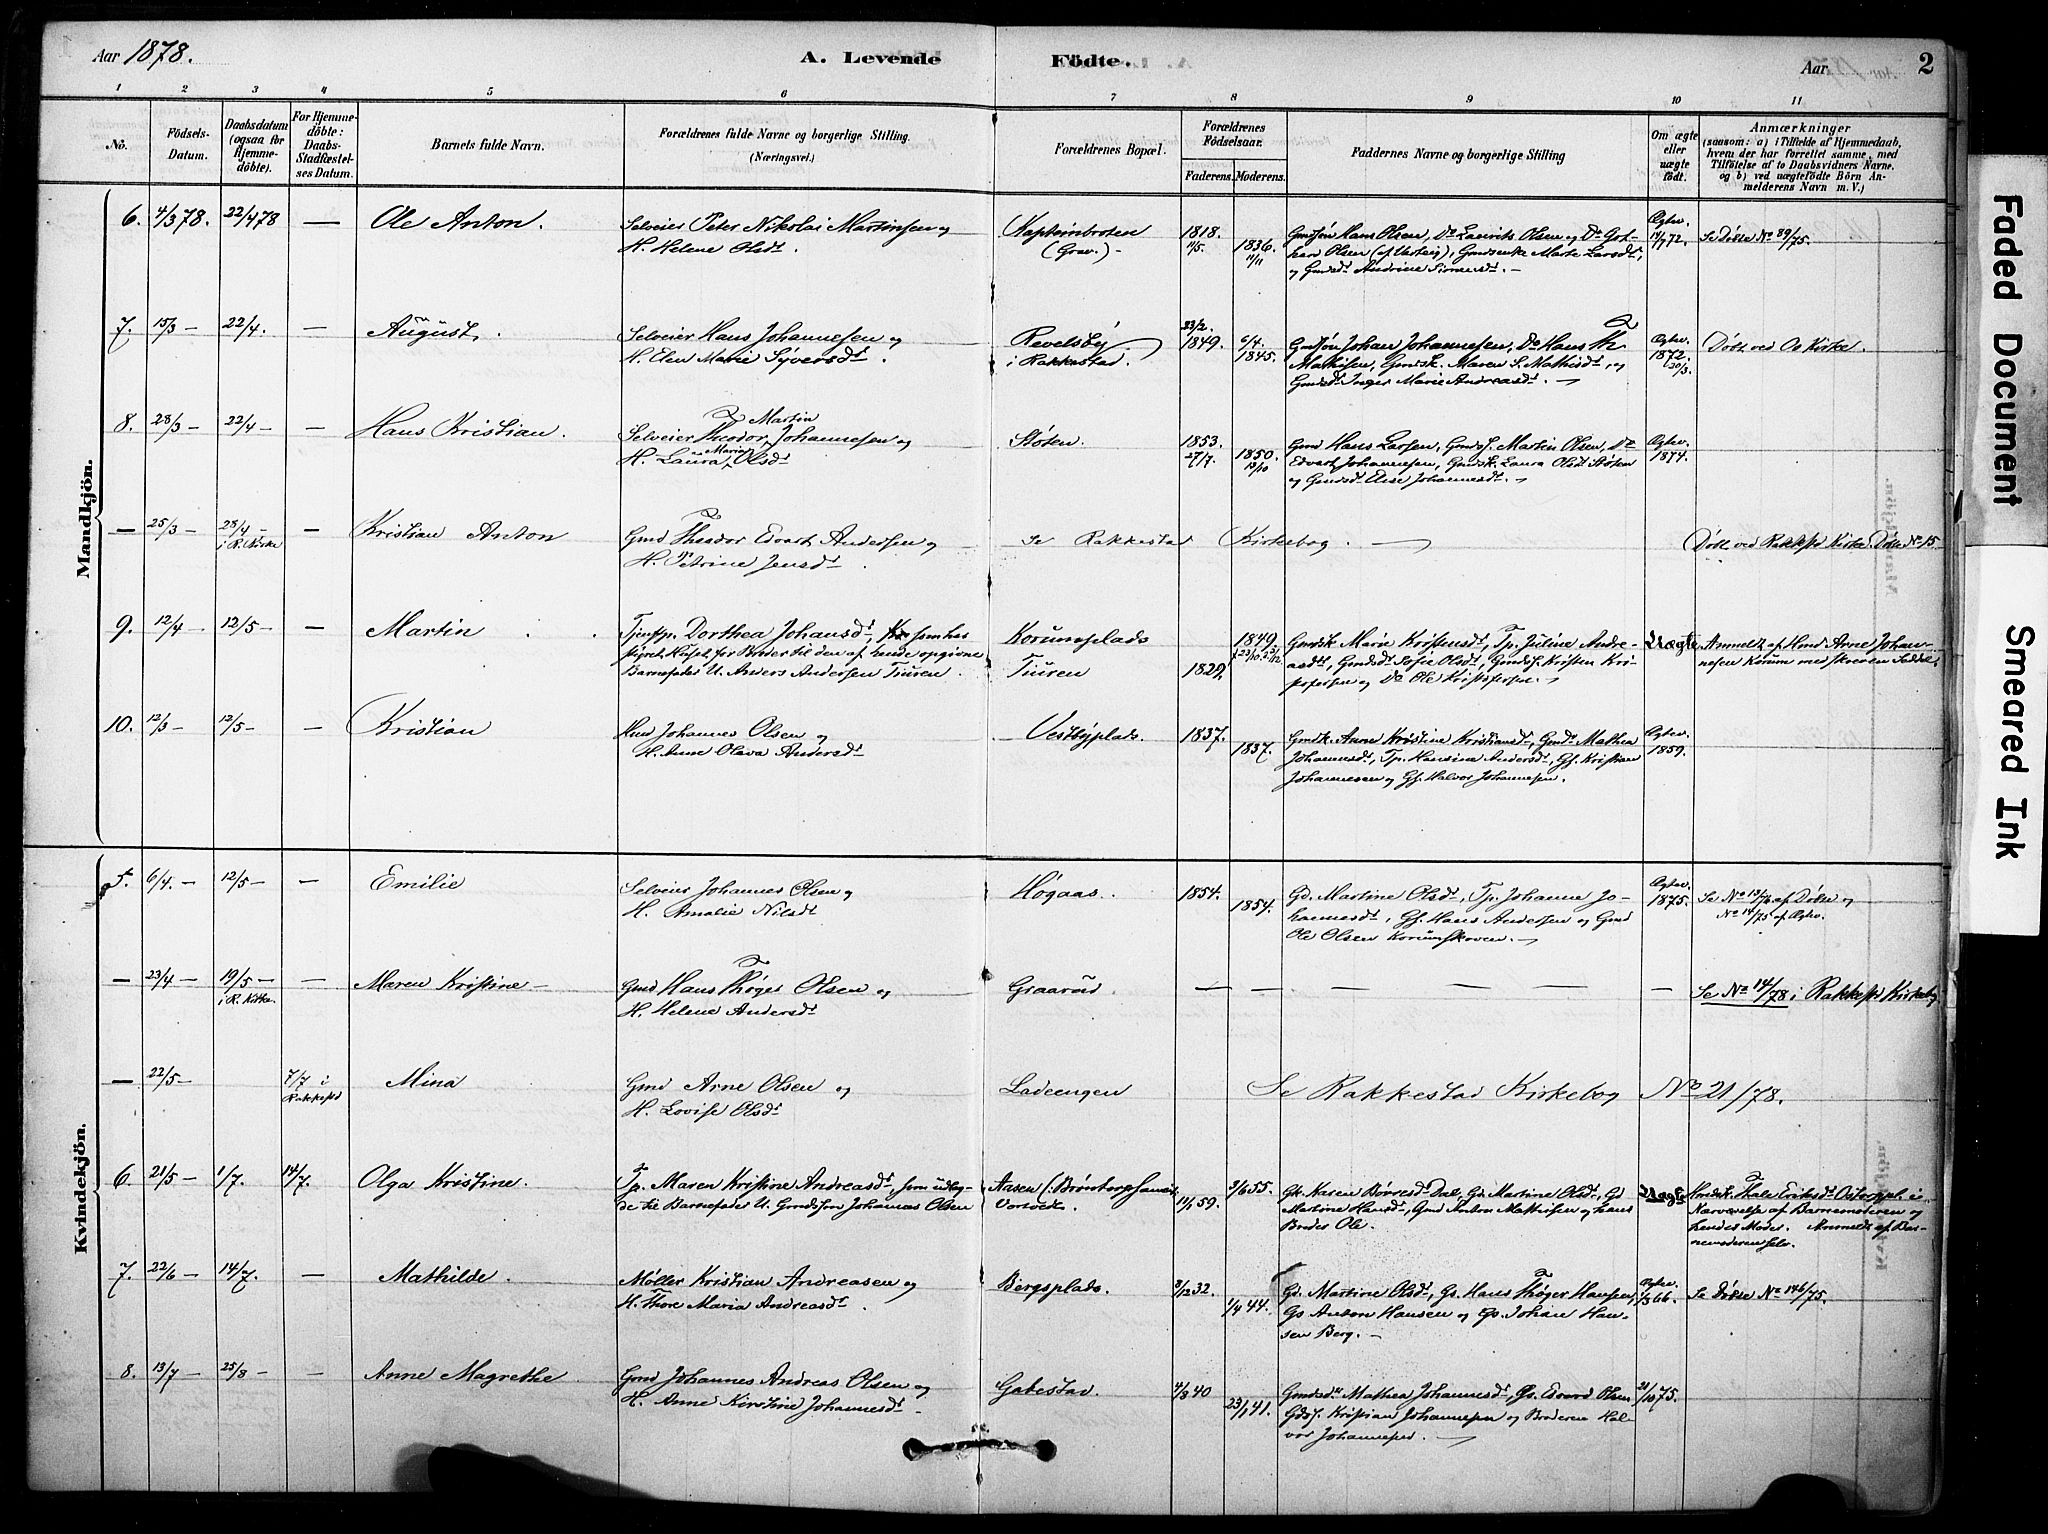 Aar 1878.
A. Levende Födte.
Aar
2
1 2 3 4 5 6 7 8 9 10 11
No.
Födsels-
Datum.
Daabsdatum
(ogsaa for
Hjemme-
döbte).
For Hjemme-
döbte:
Daabs-
Stadfæstel-
ses Datum.
Barnets fulde Navn.
Forældrenes fulde Navne og borgerlige Stilling.
(Næringsvei.)
Forældrenes Bopæl.
Forældrenes
Födselsaar.
Faderens. Moderens.
Faddernes Navne og borgerlige Stilling
Om ægte
eller
uægte
födt.
Anmærkninger
(saasom: a) i Tilfælde af Hjemmedaab,
hvem der har forrettet samme, med
Tilföielse af to Daabsvidners Navne,
og b) ved uægtefödte Börn An-
melderens Navn m. V.)
Mandkjön.
6. 4/3 78. 22/4 78 — Ole Anton.
Selveier Peter Nikolai Martinsen og
H. Helene Olsdt.
Kapteinbroten
(Grav.) -
1818.
11/5.
1836.
11/11
Gmdsøn Hans Olsen, Do Laurits Olsen og Do Got-
hard Olsen (af Varteig), Gmdsenke Marte Larsdt,
og Gmdsdt Andrine Simensdt. —
Ægtev.
14/7 72.
Se Døbte No 89/75.
7. 15/3 — 22/4. — August.
Selveier Hans Johannesen og
H. Elen Marie Syversdt.
Revelsby
i Rakkestad.
23/2.
1849.
6/4.
1845.
Gmdsøn Johan Johannesen, Do Hans Th.
Mathisen, Gmdsk. Maren S. Mathisdt, og
Gmdsdt Inger Marie Andreasdt. —
Ægtev.
1872.
20/3.
Døbt ved Os Kirke.
8. 28/3 — 22/4 — — Hans Kristian.
Selveier Theodor Martin Johannesen og
H. Laura Maria Olsdt
Støten.
1853.
27/7.
1850.
12/10
Gmd Hans Larsen, Gmdsf. Martin Olsen, Do
Edvart Johannesen, Gmdsk. Laura Olsdt Støten
og Gmdsdt Elise Johannesdt. —
Ægtev.
1874.
— 25/3 — 28/4 — — Kristian Anton
i R. Kirke
Gmd Theodor Edvart Andersen og
H. Petrine Jensdt.
Se Rakkestad Kirkebog. —
Døbt ved Rakkestd Kirke. Døbte No 15
9. 12/4 — 12/5 — — Martin
Tjenstp. Dorthea Johansdt, som har
styret Huset for Broder til den af hende opgivne
Barnefader U. Anders Andersen Tiuren.
Korumsplads
Tiuren
1829.
1849.
Gmdsk Marie Kristensdt, Tp. Juline Andre-
asdt, Gmdsdt Sofie Olsdt, Gmdsf. Kristen Kri-
stofersen og Do Ole Kristofersen. —
Uægte
Anmeldt af Hmd Arne Johan-
nesen Korum med skreven Seddel.
10. 12/3 — 12/5 — — Kristian
Hmd Johannes Olsen og
H. Anne Olava Andersdt
Vestbyplads.
1837.
1837.
Gmdsk. Anne Kristine Kristiansdt, Gmds. Mathea
Johannesdt, Tp. Hansine Andersdt, Gf. Kristian
Johannesen og Gf. Halvor Johannesen.
Ægtev.
1859.
Kvindekjön.
5. 6/4. — 12/5 — — Emilie
Selveier Johannes Olsen og
H. Amalie Nilsdt
Høgaas.
1854.
1854.
Gd. Martine Olsdt, Tp. Johanne Jo-
hannesdt, Gf. Hans Andersen og Gmd
Ole Olsen Korumskoven. —
Ægtev.
1875.
Se No 13/76 af Døbte og
No 14/75 af Ægtev.
— 23/4 — 19/5 — — Maren Kristine —
i R. Kirke.
Gmd Hans Thøger Olsen og
H. Helene Andersdt
Graarud.
— — — — — — —
Se No 14/78 i Rakkestd Kirkebog
— 22/5 — 7/7 i Mina
Rakkestd
Gmd Arne Olsen og
H. Lovise Olsdt
Ladeengen
Se Rakkestad Kirkebog No 21/78.
6. 21/5 — 1/7. 14/7. Olga Kristine.
Tp. Maren Kristine Andreasdt, som udlag-
de til Barnefader U. Gmdssøn Johannes Olsen
Aasen
Vortvedt.
11/1 59.
3/6 55.
Gk. Karen Børresdt Dal, Gd. Martine Olsdt, Gd
Martine Hansdt, Gmd Anton Mathisen og hans
Broder Ole.
Uægte
Hmdsk. Thale Eriksdt Ostorppl. i
Nærværelse af Barnemoderen og
hendes Moder. Anmeldt af Bar-
nemoderen selv.
7. 22/6 — 14/7. — Mathilde.
Møller Kristian Andreasen og
H. Thore Maria Andreasdt.
Bergsplads.
3/12 32.
1/4 44.
Gd. Martine Olsdt, Gs. Hans Thøger Hansen,
Gs Anton Hansen og Gs. Johan Han-
sen Berg. —
Ægtev.
1/3 66.
Se Døbte No 146/75.
8. 13/7 — 25/8 — Anne Magrethe
Gmd Johannes Andreas Olsen og
H. Anne Kirstine Johannesdt.
Gabestad.
4/8 40
23/1 41.
Gmdsdt Mathea Johannesdt, Gs. Edvard Olsen
Gdsf. Kristian Johannesen og Broderen Hal-
vor Johannesen. —
21/10 75.
Faded Document
Smeared Ink